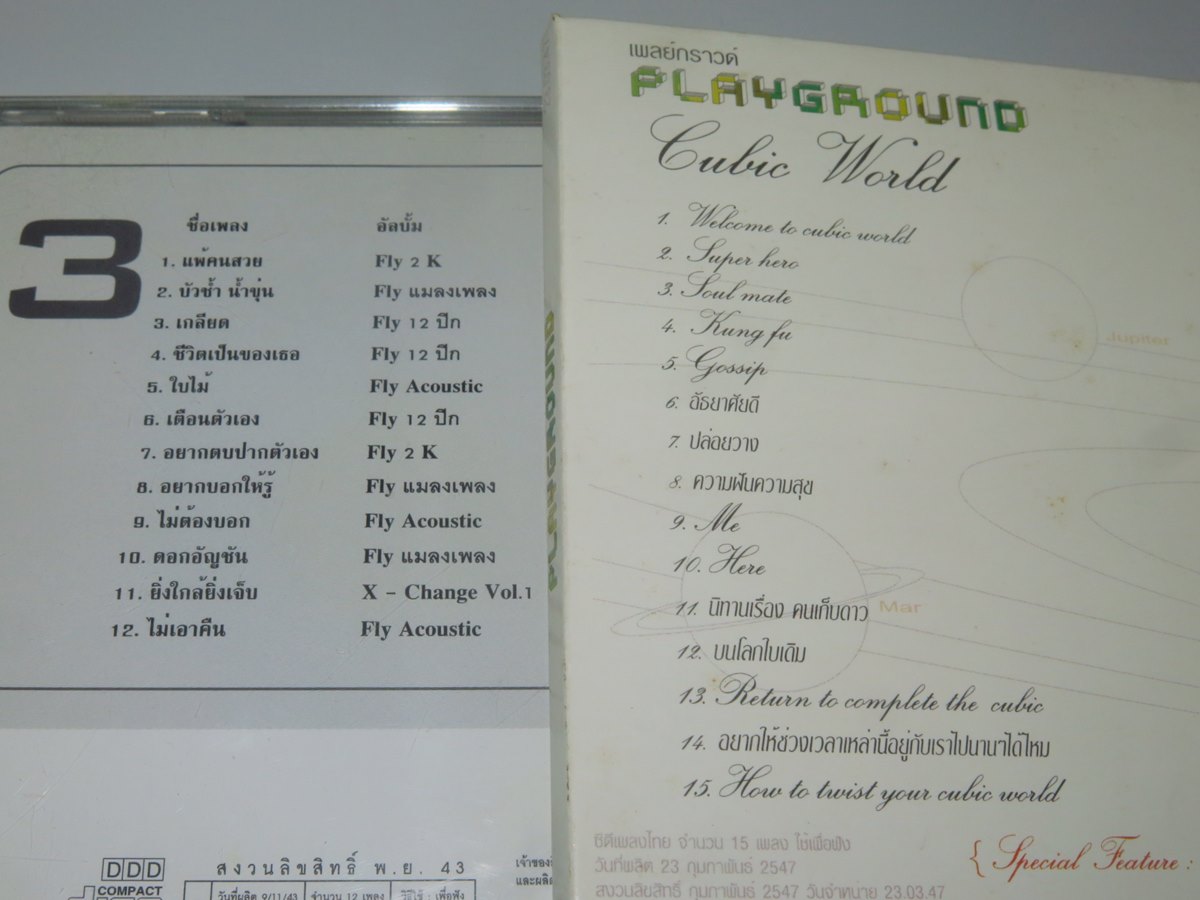 3
ชื่อเพลง อัลบั้ม
1. แพ้คนสวย Fly 2 K
2. บัวช้ำ น้ำขุ่น Fly แมลงเพลง
3. เกลียด Fly 12 ปีก
4. ชีวิตเป็นของเธอ Fly 12 ปีก
5. ใบไม้ Fly Acoustic
6. เตือนตัวเอง Fly 12 ปีก
7. อยากตบปากตัวเอง Fly 2 K
8. อยากบอกให้รู้ Fly แมลงเพลง
9. ไม่ต้องบอก Fly Acoustic
10. ดอกอัญชัน Fly แมลงเพลง
11. ยิ่งใกล้ยิ่งเจ็บ X - Change Vol.1
12. ไม่เอาคืน Fly Acoustic
DDD
COMPACT
สงวนลิขสิทธิ์ พ.ย. 43
วันที่ผลิต 9/11/43 จำนวน 12 เพลง วิธีใช้ : เพื่อฟัง
เจ้าของ
และผลิต
PLAYGROUND
เพลย์กราวด์
PLAYGROUND
Cubic World
1. Welcome to cubic world
2. Super hero
3. Soul mate
4. Kung fu
5. Gossip
6. อัธยาศัยดี
7. ปล่อยวาง
8. ความฝันความสุข
9. Me
10. Here
11. นิทานเรื่อง คนเก็บดาว
12. บนโลกใบเดิม
13. Return to complete the cubic
14. อยากให้ช่วงเวลาเหล่านี้อยู่กับเราไปนานาได้ไหม
15. How to twist your cubic world
Jupiter
Mar
ซีดีเพลงไทย จำนวน 15 เพลง ใช้เพื่อฟัง
วันที่ผลิต 23 กุมภาพันธ์ 2547
สงวนลิขสิทธิ์ กุมภาพันธ์ 2547 วันจำหน่าย 23.03.47
{ Special Feature :